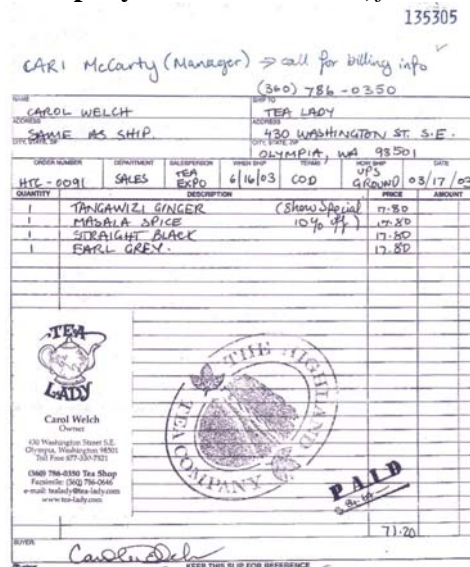 135305
CARI McCarty (Manager) → call for billing info
(360) 786-0350
NAME
SHIP TO
CAROL WELCH
TEA LADY
ADDRESS
ADDRESS
SAME AS SHIP.
430 WASHINGTON ST. S.E.
CITY, STATE, ZIP
CITY, STATE, ZIP
OLYMPIA, WA 98501
ORDER NUMBER DEPARTMENT SALESPERSON WHEN SHIP TERMS HOW SHIP DATE
HTC-0091 SALES TEA EXPO 6/16/03 COD UPS GROUND 03/17/03
QUANTITY DESCRIPTION PRICE AMOUNT
1 TANGAWIZI GINGER (Show Special 17.80
1 MASALA SPICE 10% off) 17.80
1 STRAIGHT BLACK 17.80
1 EARL GREY. 17.80
TEA
LADY
Carol Welch
Owner
430 Washington Street S.E.
Olympia, Washington 98501
Toll Free 877-330-7521
(360) 786-0350 Tea Shop
Facsimile: (360) 786-0646
e-mail: tealady@tea-lady.com
www.tea-lady.com
THE HIGHLAND
TEA COMPANY
PAID
71.20
BUYER
KEEP THIS SLIP FOR REFERENCE